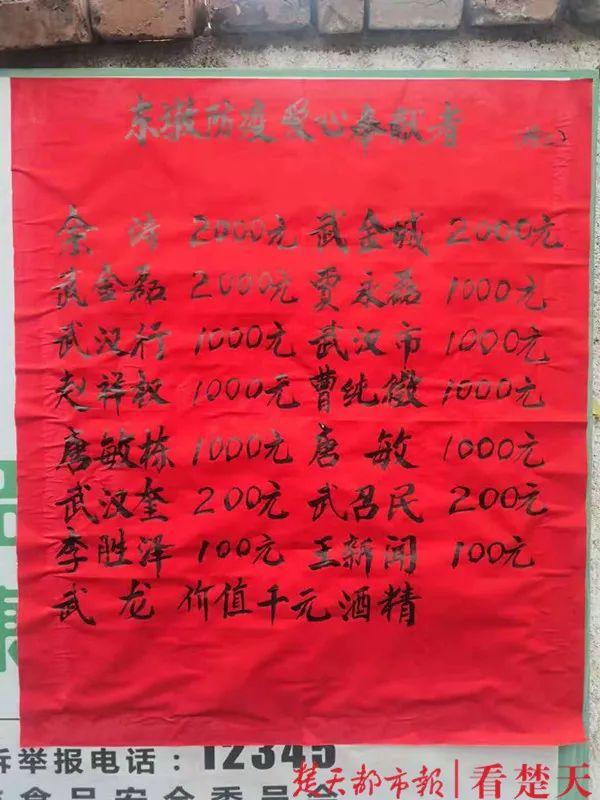 东墩防疫爱心奉献者
余涛 2000元 武金城 2000元
武金磊 2000元 贾永磊 1000元
武汉行 1000元 武汉市 1000元
赵祥权 1000元 曹纯徽 1000元
唐敏栋 1000元 唐敏 1000元
武汉奎 200元 武召民 200元
李胜泽 100元 王新闻 100元
武龙 价值千元酒精
诉举报电话：12345
食品安全委员会
楚天都市报 看楚天